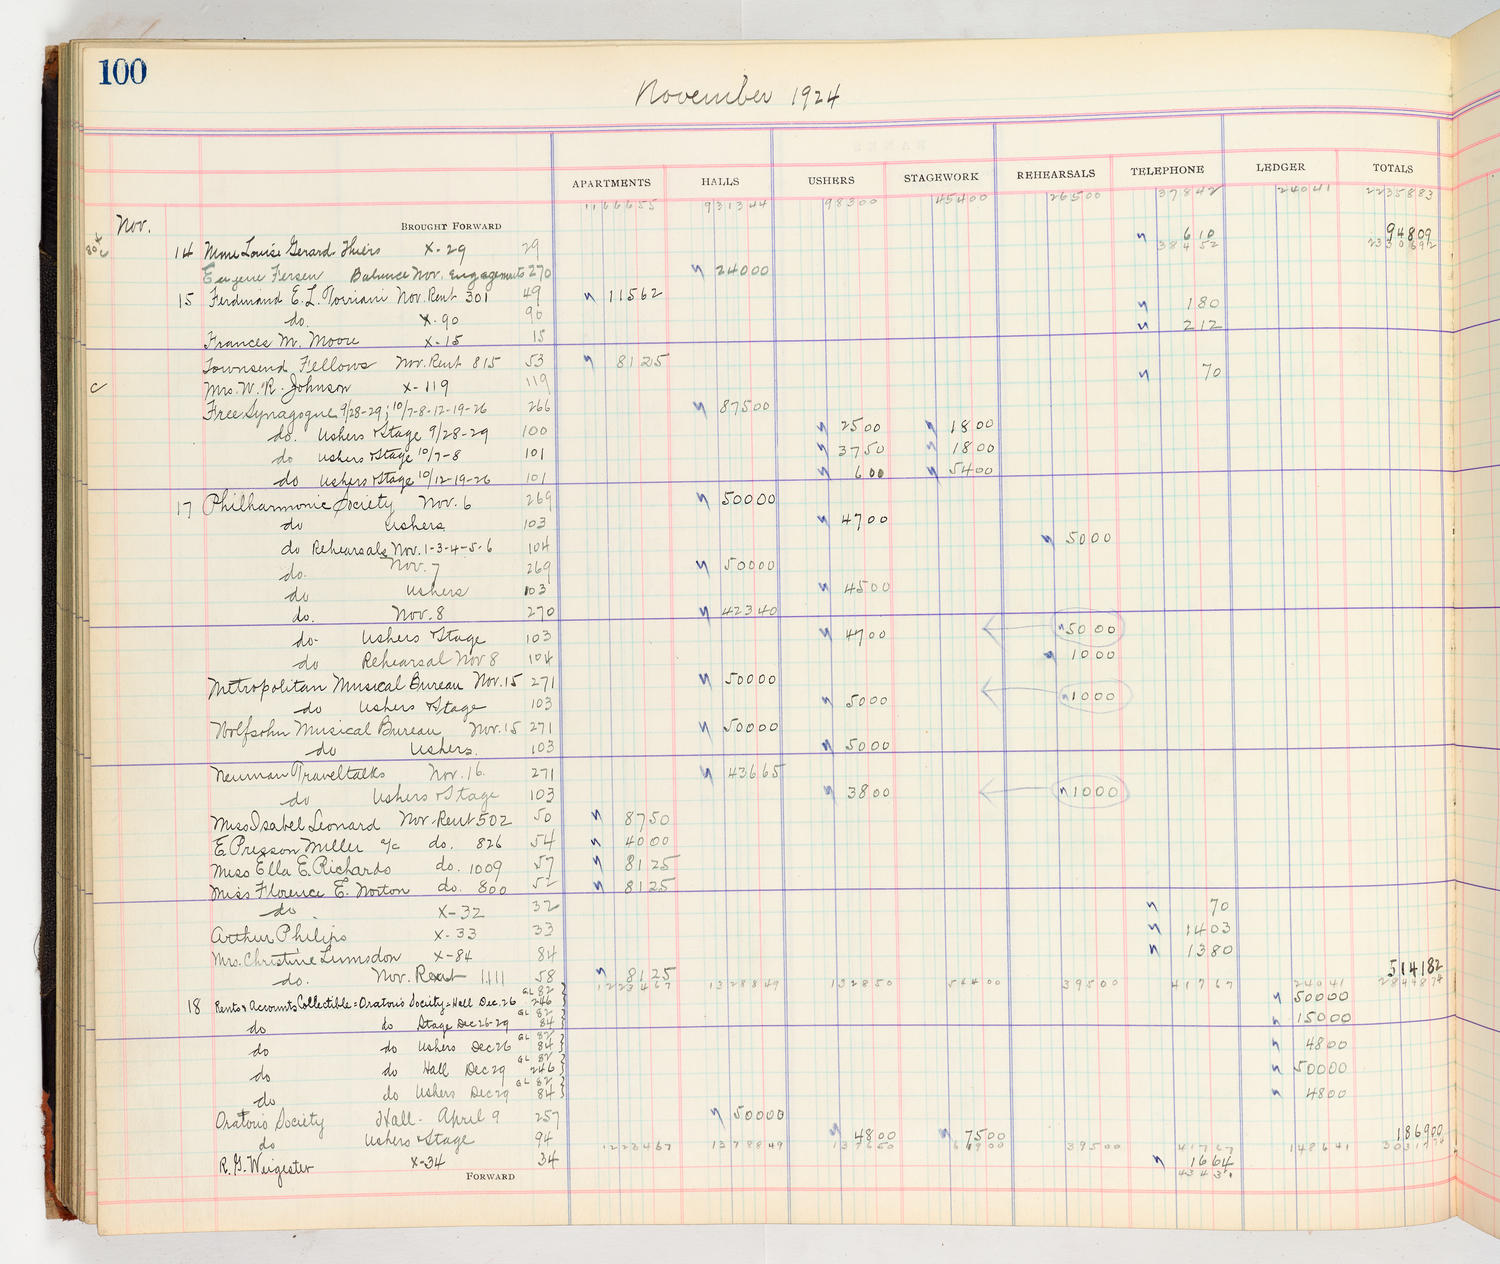 100
November 1924
APARTMENTS HALLS USHERS STAGEWORK REHEARSALS TELEPHONE LEDGER TOTALS
Nov. BROUGHT FORWARD 1166655 931344 98300 45400 26500 37842 24041 2235883
14 Mme Louise Gerard Thiers X-29 29 610 94809
38452 2330692
Eugene Fersen Balance Nov. Engagements 270 24000
15 Ferdinand E. L. Torriani Nov. Rent 301 49 11562
do. X-90 90 180
Frances M. Moore X-15 15 212
Townsend Fellows Nov. Rent 815 53 8125
C Mrs. W. R. Johnson X-119 119 70
Free Synagogue 9/28-29; 10/7-8-12-19-26 266 87500
do. Ushers & Stage 9/28-29 100 2500 1800
do Ushers & Stage 10/7-8 101 3750 1800
do Ushers & Stage 10/12-19-26 101 600 5400
17 Philharmonic Society Nov. 6 269 50000
do Ushers 103 4700
do Rehearsals Nov. 1-3-4-5-6 104 5000
do. Nov. 7 269 50000
do Ushers 103 4500
do. Nov. 8 270 42340
do- Ushers & Stage 103 4700 5000
do Rehearsal Nov 8 104 1000
Metropolitan Musical Bureau Nov. 15 271 50000
do Ushers & Stage 103 5000 1000
Wolfsohn Musical Bureau Nov. 15 271 50000
do Ushers. 103 5000
Neuman Traveltalks Nov. 16. 271 43665
do Ushers & Stage 103 3800 1000
Miss Isabel Leonard Nov. Rent 502 50 8750
E Presson Miller a/c do. 826 54 4000
Miss Ella E. Richards do. 1009 57 8125
Miss Florence E. Norton do. 800 52 8125
do. X-32 32 70
Arthur Philips X-33 33 1403
Mrs. Christine Lumsdon X-84 84 1380
do. Nov. Rent 1111 58 8125 514182
1223467 1328849 132850 56400 39500 41767 24041
18 Rents & Accounts Collectible = Oratorio Society = Hall Dec. 26 GL 82 246 50000
do do Stage Dec 26-29 GL 82 84 15000
do do Ushers Dec 26 GL 82 84 4800
do do Hall Dec 29 GL 82 246 50000
do do Ushers Dec 29 GL 82 84 4800
Oratorio Society Hall - April 9 257 50000
do Ushers & Stage 94 4800 7500 186900
1223467 1378849 137650 39500 41767 148641
R. G. Weigester X-34 34 1664
FORWARD 43431